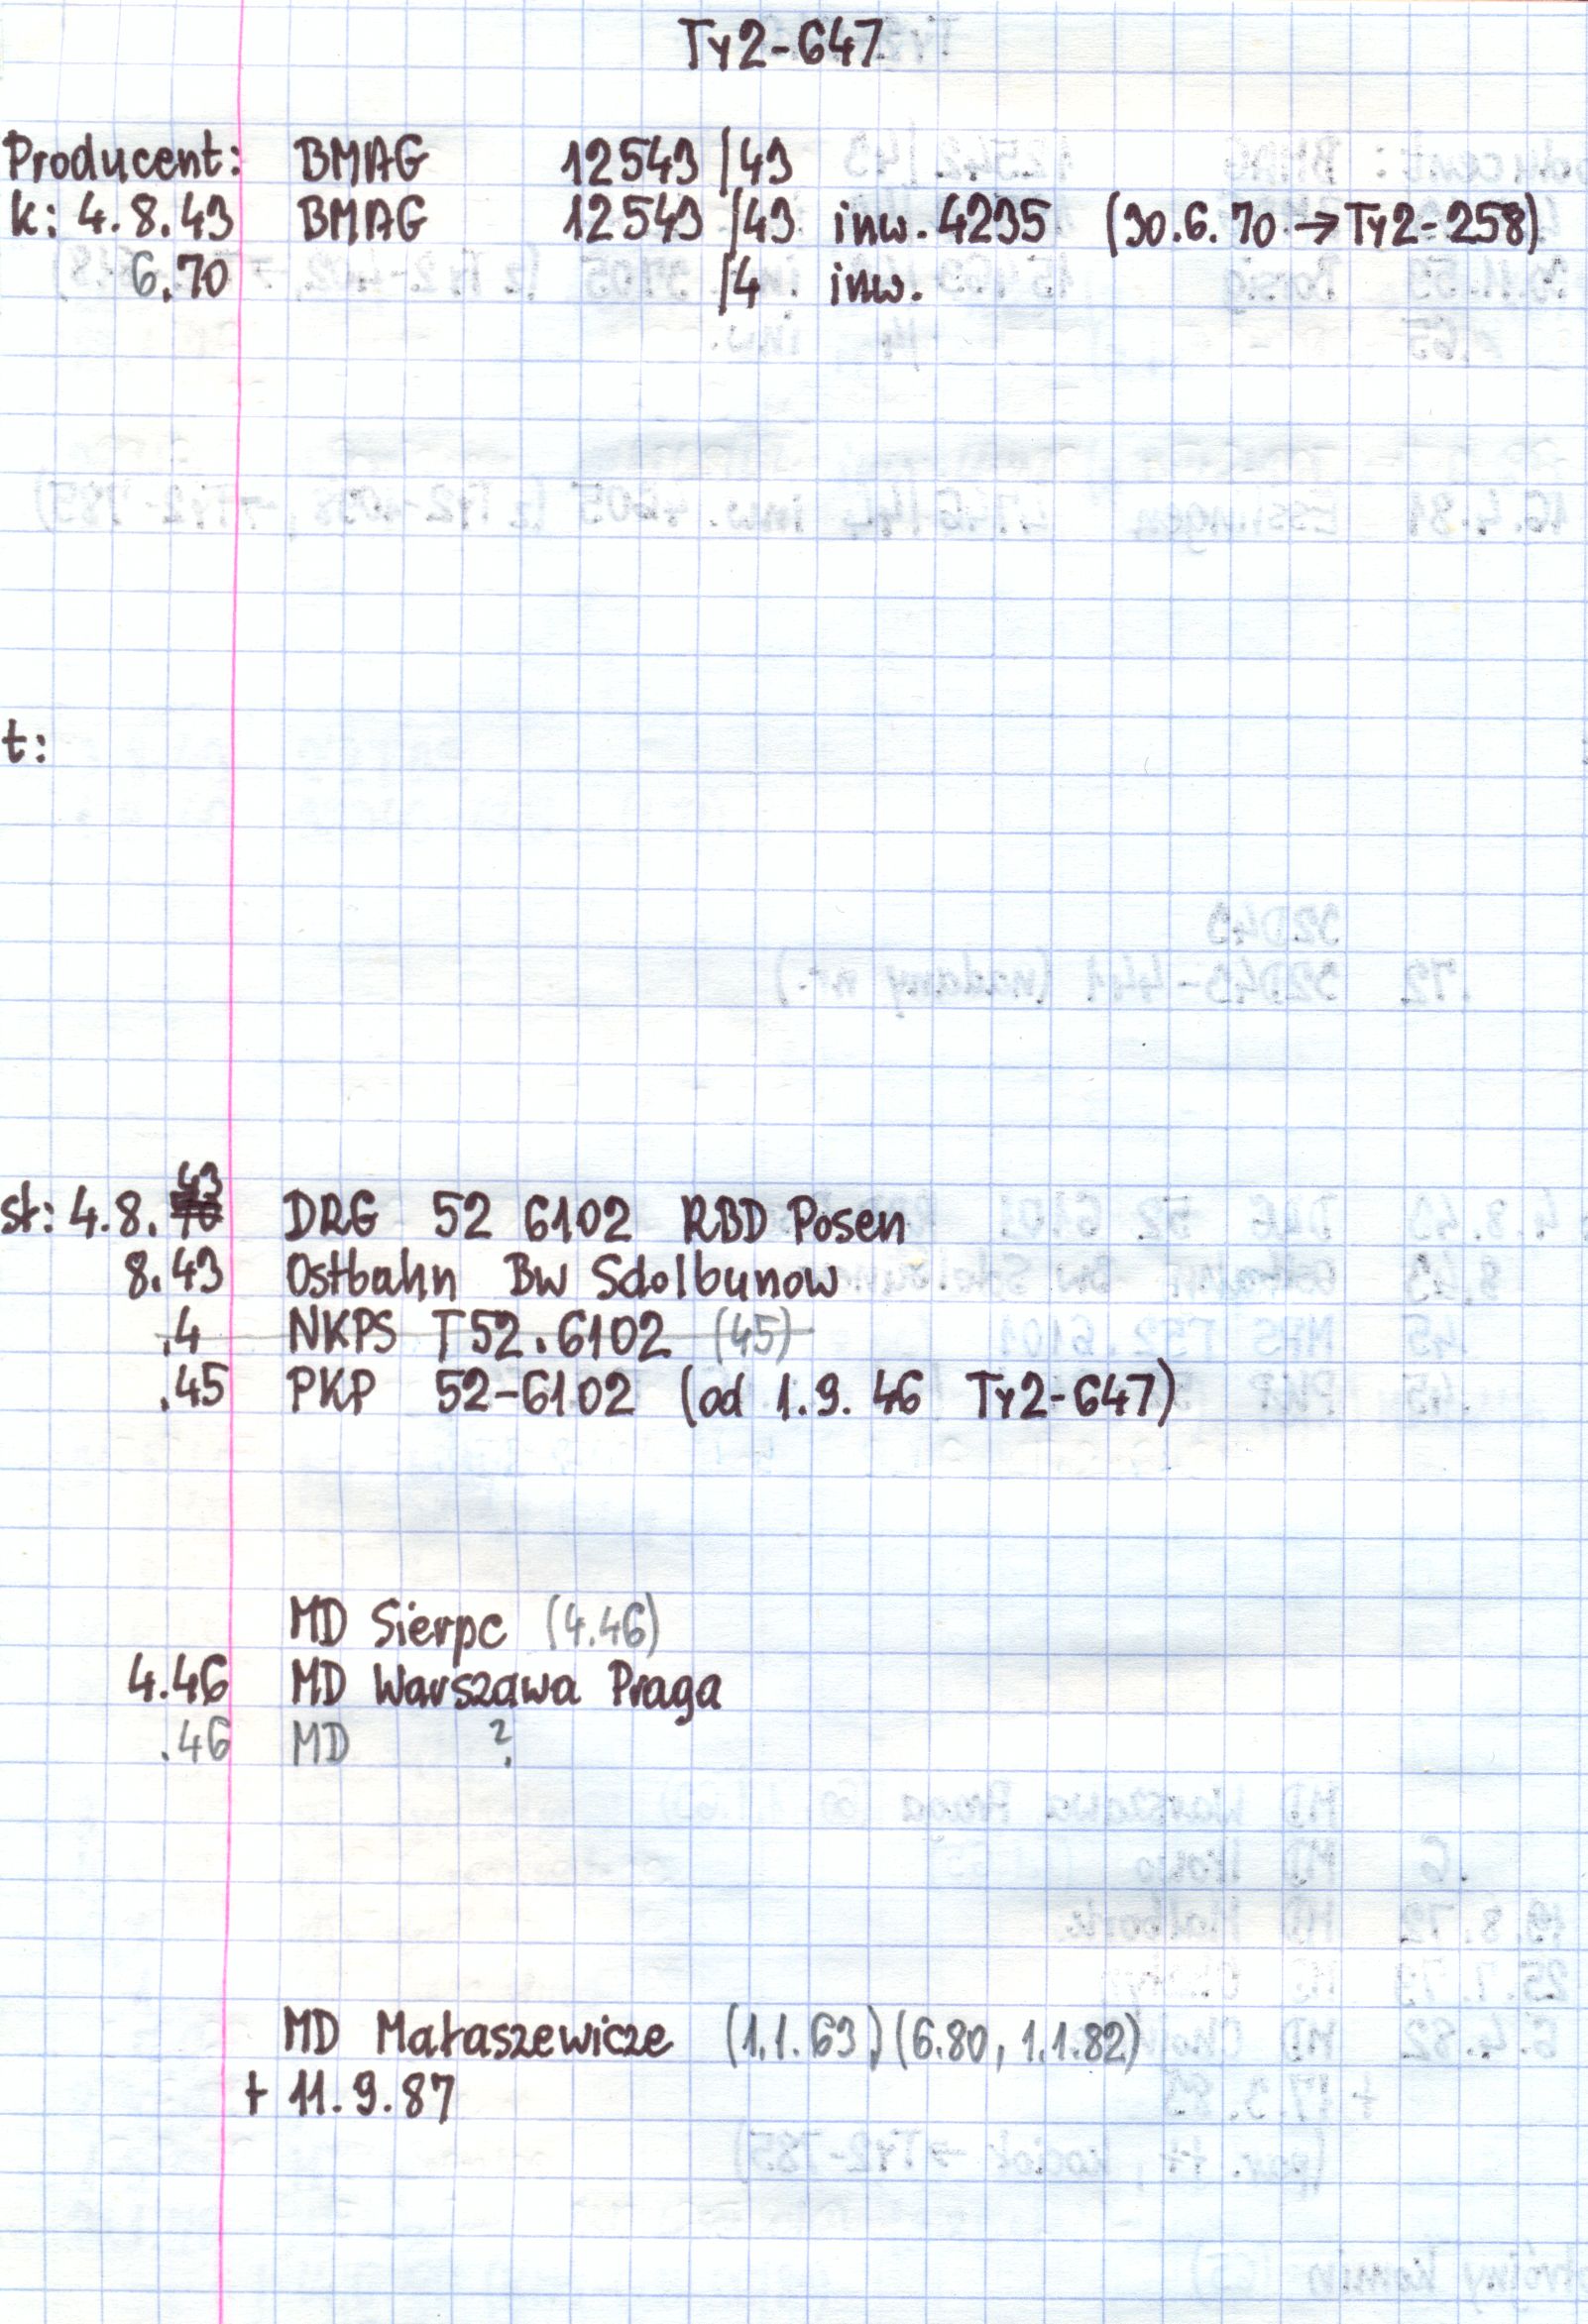 Ty2-647
Producent: BMAG 12543/43
k: 4.8.43 BMAG 12543/43 inw. 4235 (30.6.70 → Ty2-258)
6.70 /4 inw.
t:
st: 4.8.43 DRG 52 6102 RBD Posen
8.43 Ostbahn Bw Sdolbunow
.4 NKPS T52.6102 (45)
.45 PKP 52-6102 (od 1.9.46 Ty2-647)
MD Sierpc (4.46)
4.46 MD Warszawa Praga
.46 MD ?
MD Małaszewicze (1.1.63)(6.80, 1.1.82)
+ 11.9.87